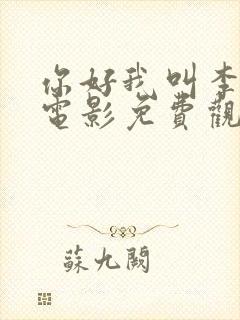 你好我叫李
電影免費觀
蘇九闕